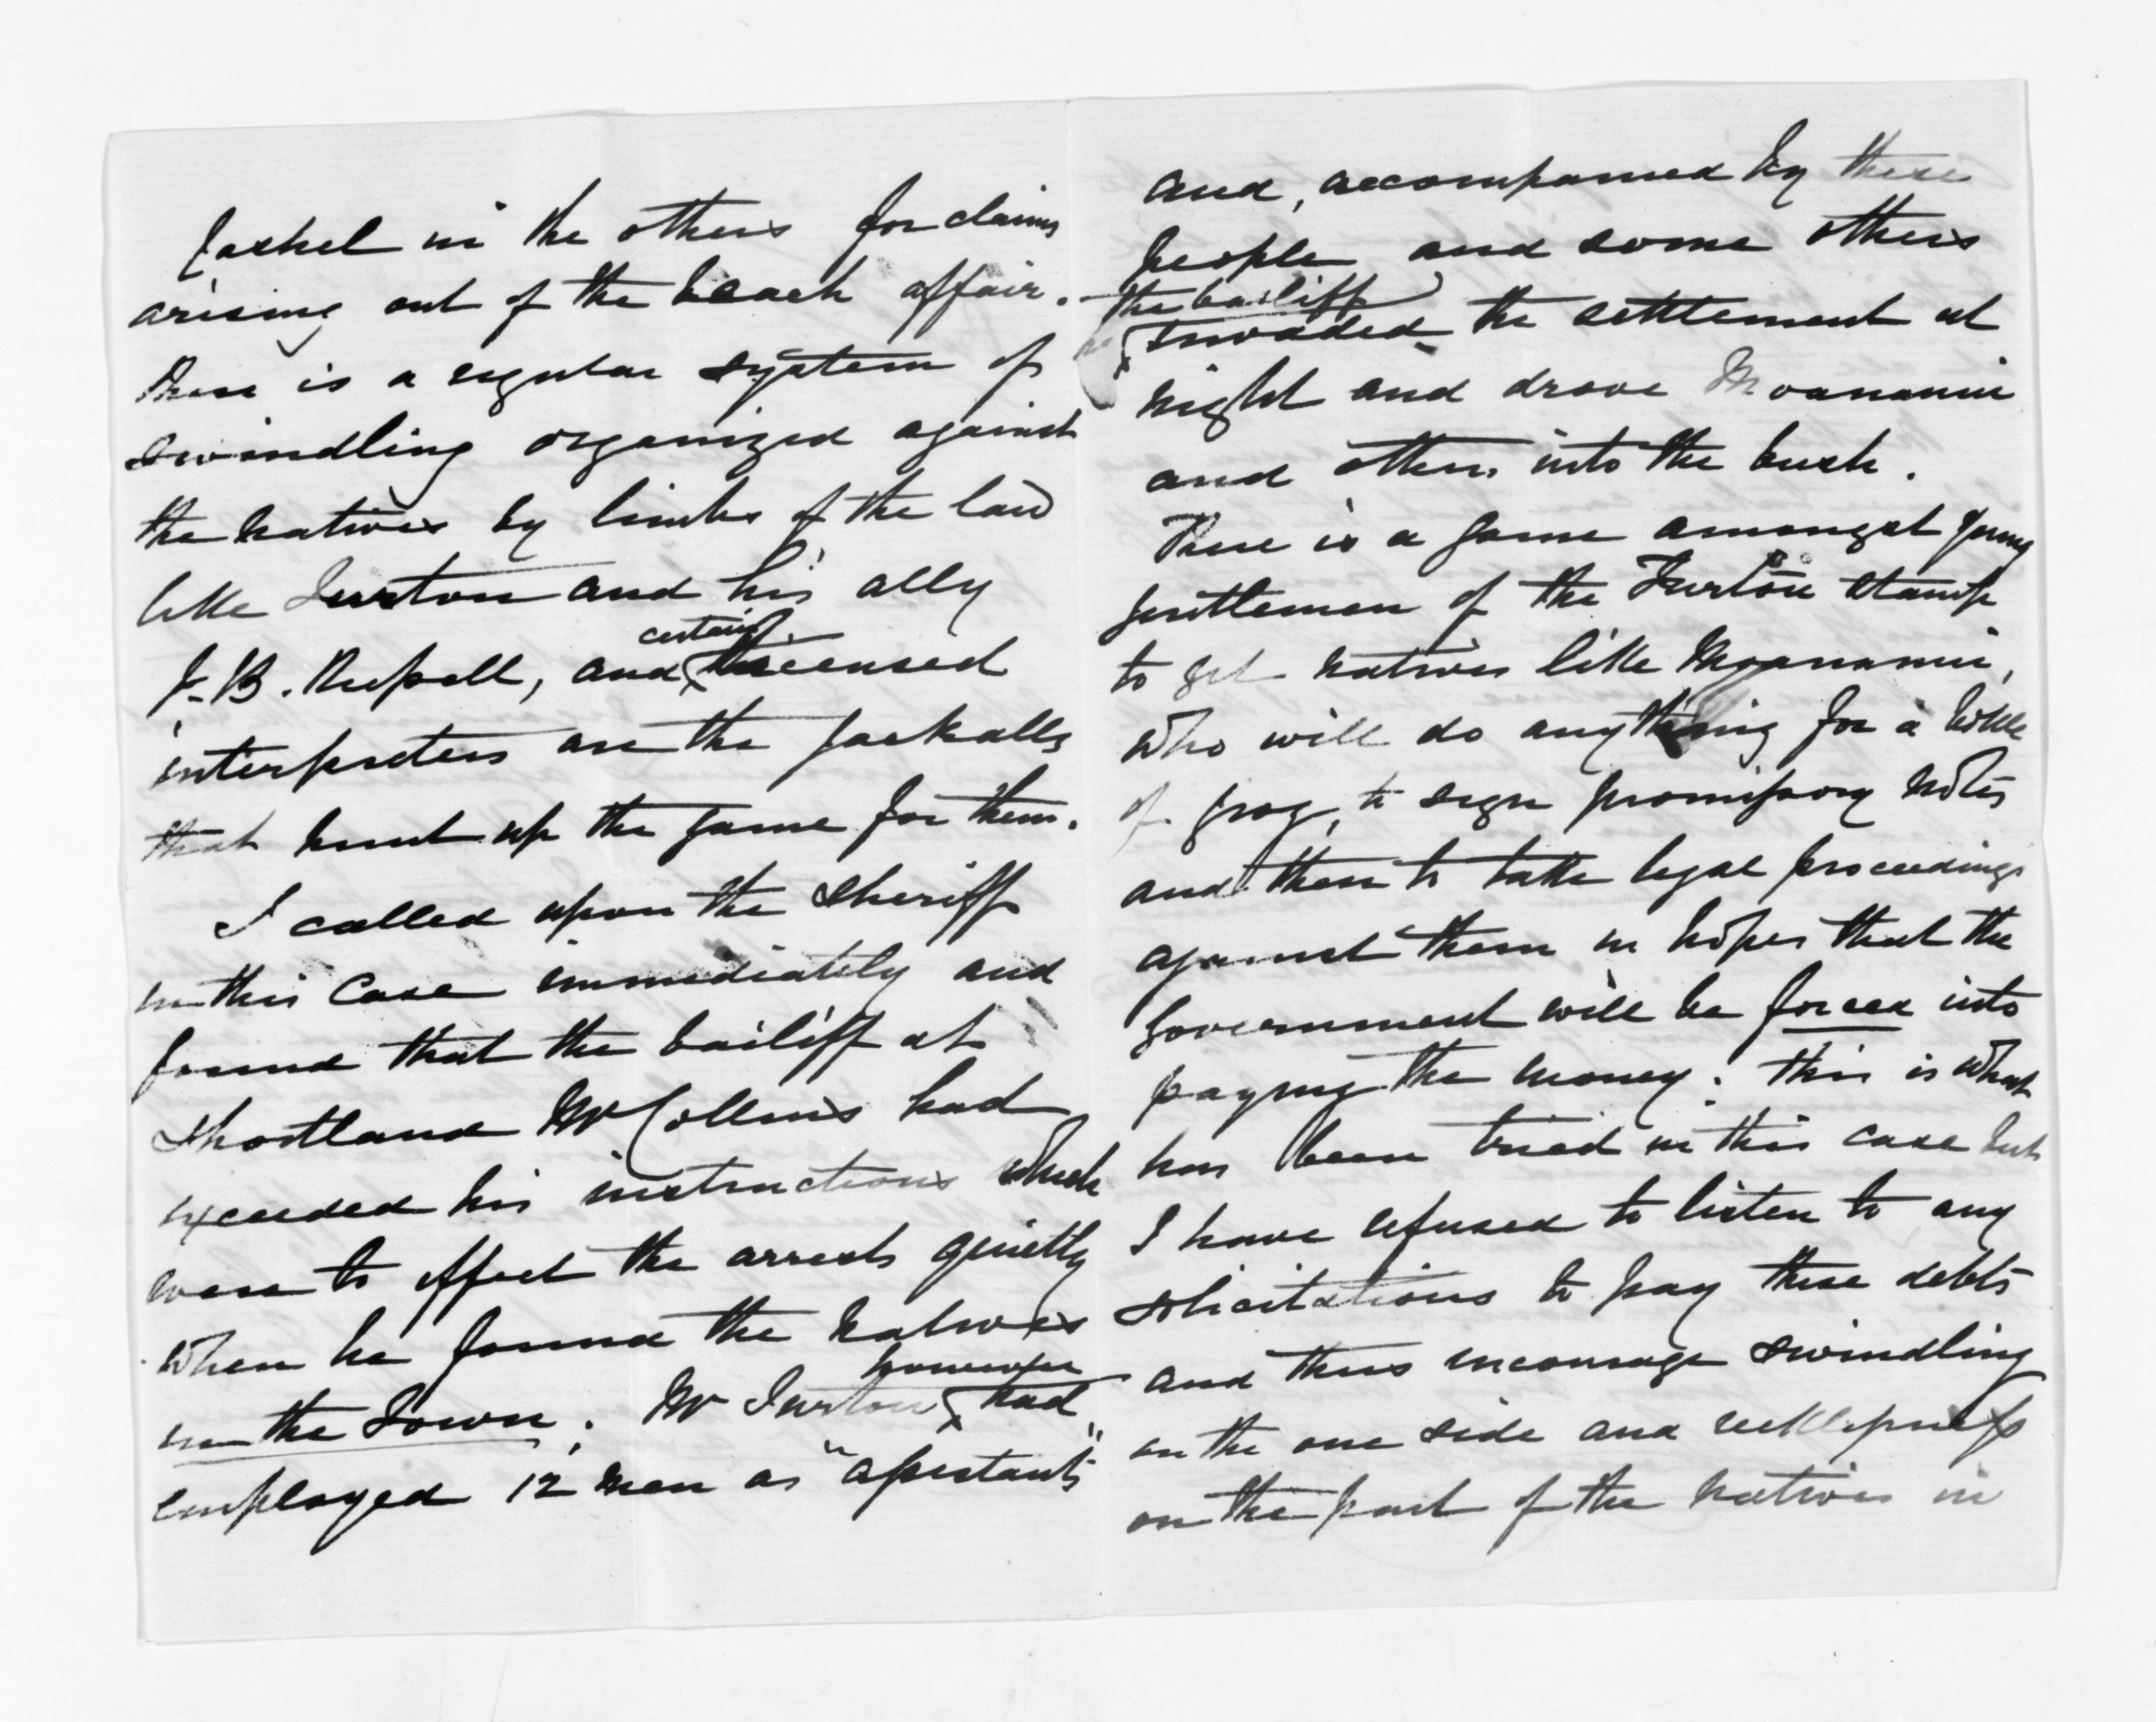 Jackel in the others for claims
arising out of the beach affair.
There is a regular system of
swindling organized against
the natives by limbs of the law
like Turton and his ally
J. B. Russell, and certain licensed
interpreters are the jackalls
that hunt up the game for them.
I called upon the Sheriff
in this case immediately and
found that the bailiff at
Shortland Mr Collins had
exceeded his instructions which
were to effect the arrests quietly
when he found the natives
in the Town; Mr Turton however had
employed 12 men as "assistants"
and, accompanied by these
people and some others
the bailiff
invaded the settlement at
night and drove Moananui
and others into the bush.
There is a game amongst young
gentlemen of the Turton stamp
to get natives like Moananui,
who will do anything for a bottle
of grog, to sign promissory notes
and then to take legal proceedings
against them in hopes that the
Government will be forced into
paying the money: this is what
has been tried in this case but
I have refused to listen to any
solicitations to pay these debts
and thus encourage swindling
on the one side and recklessness
on the part of the natives in